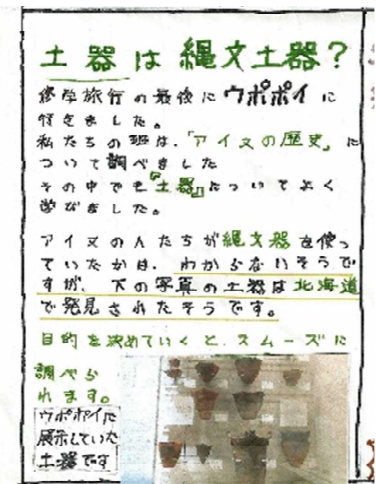 土器は縄文土器？
修学旅行の最後にウポポイに
行きました。
私たちの班は、「アイヌの歴史」に
ついて調べました
その中でも『土器』についてよく
学びました。
アイヌの人たちが縄文器を使っ
ていたかは、わからないそうで
すが、下の写真の土器は北海道
で発見されたそうです。
目的を決めていくと、スムーズに
調べら
れます。
ウポポイに
展示していた
土器です